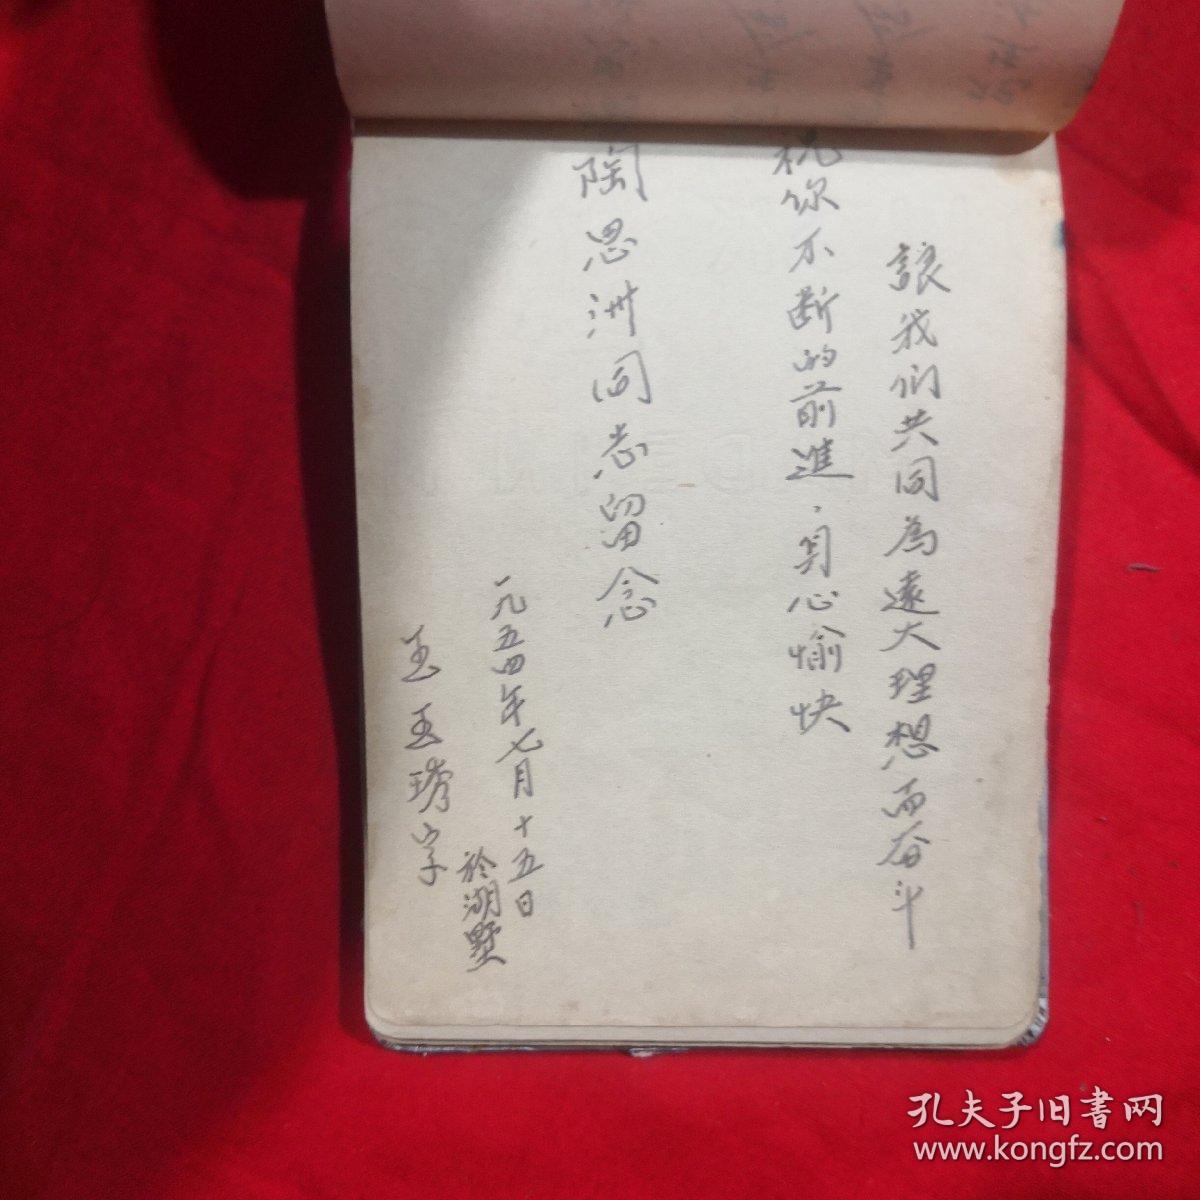 讓我们共同為遠大理想而奋斗
祝你不断的前進、身心愉快
陶思洲同志留念
一九五四年七月十五日
於湖墅
玉琇字
孔夫子旧書网
www.kongfz.com